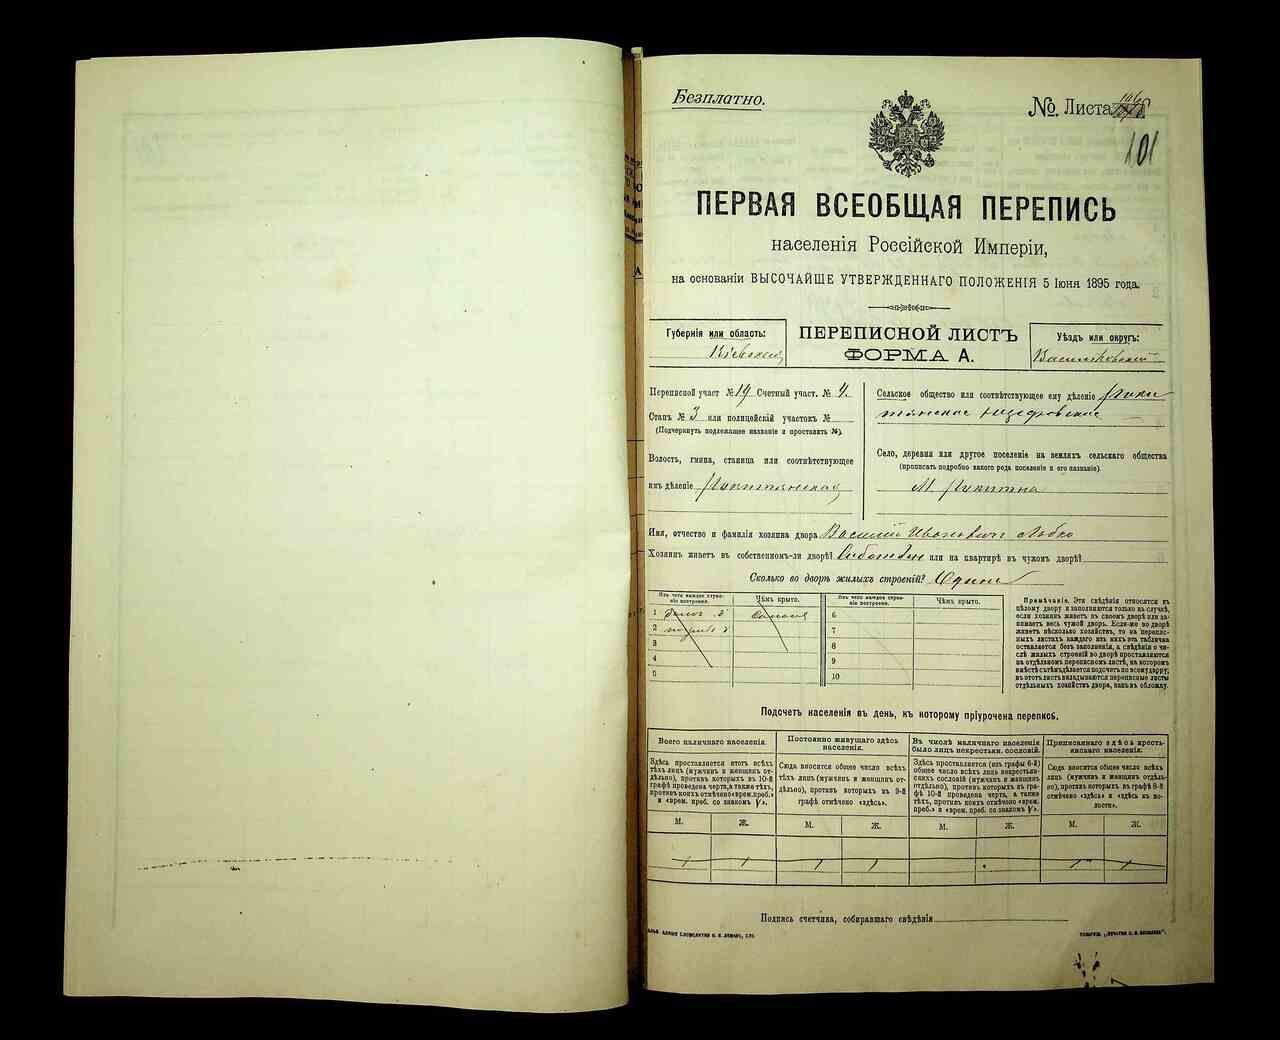 Безплатно.
№ Листа 146
101
ПЕРВАЯ ВСЕОБЩАЯ ПЕРЕПИСЬ
населенія Россійской Имперіи,
на основаніи ВЫСОЧАЙШЕ УТВЕРЖДЕННАГО ПОЛОЖЕНІЯ 5 Іюня 1895 года.
Губернія или область:
Кіевская
ПЕРЕПИСНОЙ ЛИСТЪ
ФОРМА А.
Уѣздъ или округъ:
Васильковскій
Переписной участ № 19 Счетный участ. № 4.
Станъ № 3 или полицейскій участокъ №
(Подчеркнуть подлежащее названіе и проставить №).
Волость, гмина, станица или соотвѣтствующее
имъ дѣленіе
Сельское общество или соотвѣтствующее ему дѣленіе
Село, деревня или другое поселеніе на земляхъ сельскаго общества
(прописать подробно какого рода поселеніе и его названіе).
М.
Имя, отчество и фамилія хозяина двора Василій Ивановичъ
Хозяинъ живетъ въ собственномъ-ли дворѣ? или на квартирѣ въ чужомъ дворѣ?
Сколько во дворѣ жилыхъ строеній? Одинъ
Изъ чего каждое строе-
ніе построено.
Чѣмъ крыто.
1
Солома
2
3
4
5
Изъ чего каждое строе-
ніе построено.
Чѣмъ крыто.
6
7
8
9
10
Примѣчаніе. Эти свѣдѣнія относятся къ
цѣлому двору и заполняются только въ случаѣ,
если хозяинъ живетъ въ своемъ дворѣ или за-
нимаетъ весь чужой дворъ. Если-же во дворѣ
живетъ нѣсколько хозяйствъ, то на перепис-
ныхъ листахъ каждаго изъ нихъ эта табличка
оставляется безъ заполненія, а свѣдѣнія о чи-
слѣ жилыхъ строеній во дворѣ проставляются
на отдѣльномъ переписномъ листѣ, на которомъ
вмѣстѣ съ тѣмъ дѣлается подсчетъ по всему двору;
въ этотъ листъ вкладываются переписные листы
отдѣльныхъ хозяйствъ двора, какъ въ обложку.
Подсчетъ населенія въ день, къ которому пріурочена перепись.
Всего наличнаго населенія.
Здѣсь проставляется итогъ всѣхъ
тѣхъ лицъ (мужчинъ и женщинъ от-
дѣльно), противъ которыхъ въ 10-й
графѣ проведена черта, а также тѣхъ,
противъ коихъ отмѣчено «врем. преб.»
и «врем. преб. со знакомъ V».
М. Ж.
1 1
Постоянно живущаго здѣсь
населенія.
Сюда вносится общее число всѣхъ
тѣхъ лицъ (мужчинъ и женщинъ от-
дѣльно), противъ которыхъ въ 9-й
графѣ отмѣчено «здѣсь».
М. Ж.
1 1
Въ числѣ наличнаго населенія
было лицъ некрестьян. сословій.
Здѣсь проставляется (изъ графы 6-й)
общее число всѣхъ лицъ некрестьян-
скихъ сословій (мужчинъ и женщинъ
отдѣльно), противъ которыхъ въ гра-
фѣ 10-й проведена черта, а также
тѣхъ, противъ коихъ отмѣчено «врем.
преб.» и «врем. преб. со знакомъ V».
М. Ж.
Приписаннаго здѣсь кресть-
янскаго населенія.
Сюда вносится общее число всѣхъ
лицъ (мужчинъ и женщинъ отдѣль-
но), противъ которыхъ въ графѣ 8-й
отмѣчено «здѣсь» и «здѣсь къ во-
лости».
М. Ж.
1 1
Подпись счетчика, собиравшаго свѣдѣнія